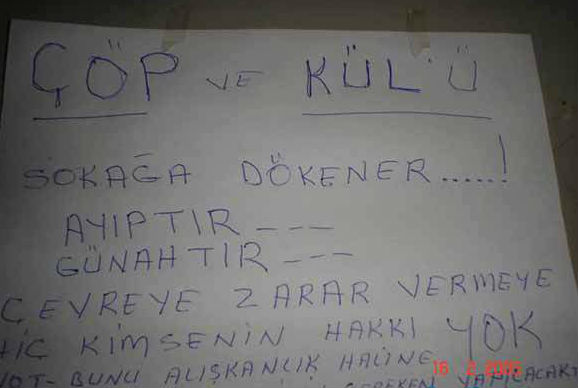 ÇÖP VE KÜL'Ü
SOKAĞA DÖKENER......!
AYIPTIR ---
GÜNAHTIR ---
ÇEVREYE ZARAR VERMEYE
HİÇ KİMSENİN HAKKI YOK
NOT-BUNU ALIŞKANLIK HALİNE
YAPILACAKT